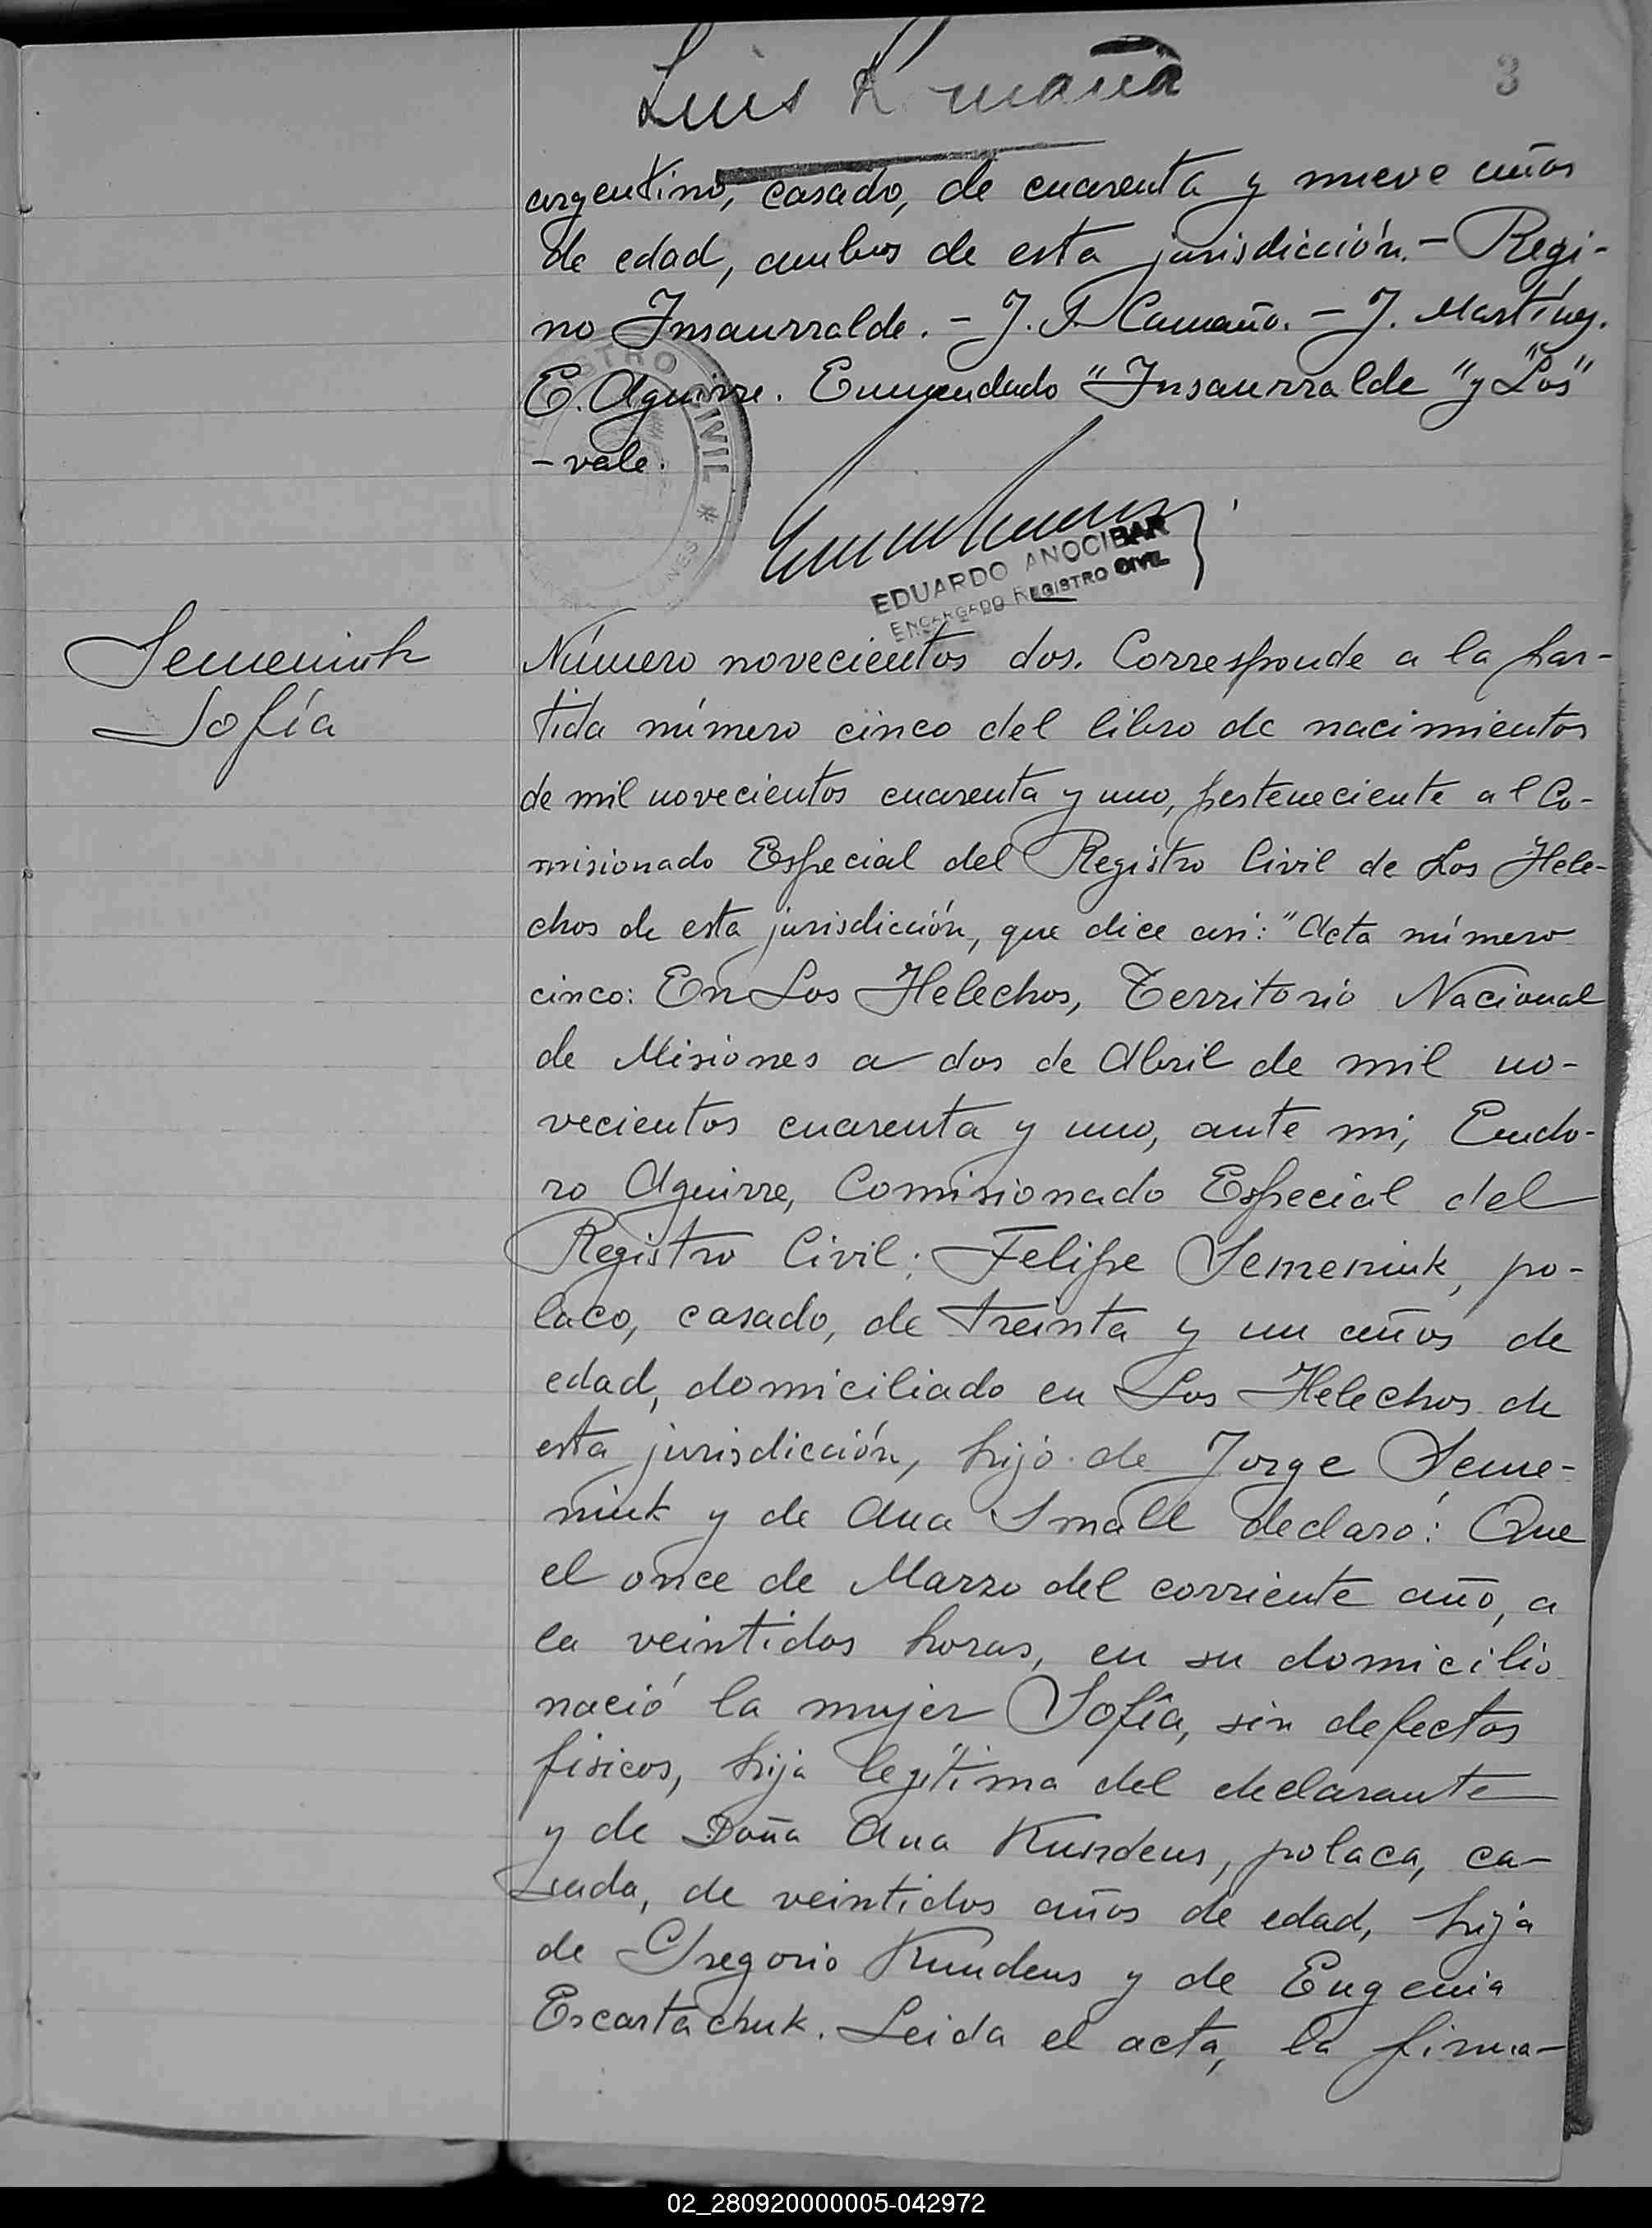 3
Luis
argentino, casado, de cuarenta y nueve años
de edad, ambos de esta jurisdicción. - Regi-
no Insaurralde. - J. P. Camaño. - J. Martínez.
E. Aguirre. Enmendado "Insaurralde" y "Los"
- vale.
REGISTRO CIVIL *
EDUARDO ANOCIBAR
ENCARGADO REGISTRO CIVIL
Semeniuk
Sofía
Número novecientos dos. Corresponde a la par-
tida número cinco del libro de nacimientos
de mil novecientos cuarenta y uno, perteneciente al Co-
misionado Especial del Registro Civil de Los Hele-
chos de esta jurisdicción, que dice así: "Acta número
cinco: En Los Helechos, Territorio Nacional
de Misiones a dos de Abril de mil no-
vecientos cuarenta y uno, ante mi, Eudo-
ro Aguirre, Comisionado Especial del
Registro Civil; Felipe Semeniuk, po-
laco, casado, de treinta y un años de
edad, domiciliado en Los Helechos de
esta jurisdicción, hijo de Jorge Seme-
niuk y de Ana Small declaró: Que
el once de Marzo del corriente año, a
la veintidos horas, en su domicilio
nació la mujer Sofía, sin defectos
fisicos, hija legítima del declarante
y de Doña Ana Kundeus, polaca, ca-
sada, de veintidos años de edad, hija
de Gregorio Kundeus y de Eugenia
Escartachuk. Leida el acta, la firma-
02_280920000005-042972